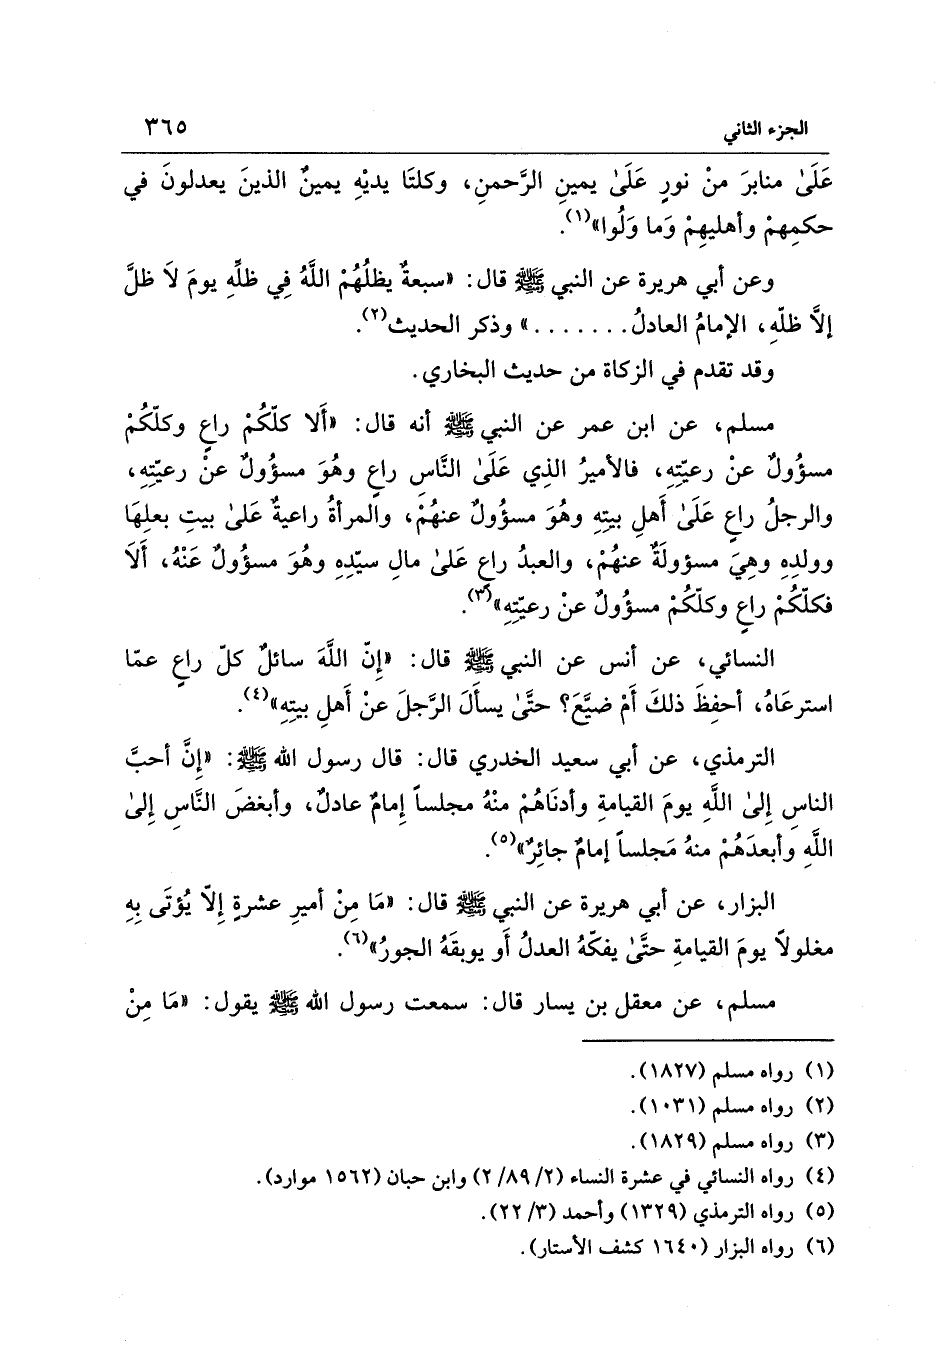 الجزء الثاني ٣٦٥
عَلَىٰ منابرَ منْ نورٍ عَلَىٰ يمينِ الرَّحمنِ، وكلتَا يديْهِ يمينٌ الذينَ يعدلونَ في
حكمِهمْ وأهليهِمْ وَما وَلُوا»(١).
وعن أبي هريرة عن النبي ﷺ قال: «سبعةٌ يظلُهُمْ اللَّهُ فِي ظلِّهِ يومَ لاَ ظلَّ
إلاَّ ظلّهِ، الإمامُ العادلُ.......» وذكر الحديث(٢).
وقد تقدم في الزكاة من حديث البخاري.
مسلم، عن ابن عمر عن النبي ﷺ أنه قال: «أَلا كلّكُمْ راعٍ وكلّكُمْ
مسؤُولٌ عنْ رعيّتِهِ، فالأميرُ الذِي عَلَىٰ النَّاسِ راعٍ وهُوَ مسؤُولٌ عنْ رعيّتِهِ،
والرجلُ راعٍ عَلَىٰ أَهلِ بيتِهِ وهُوَ مسؤُولٌ عنهُمْ، والمرأةُ راعيةٌ عَلىٰ بيتِ بعلِهَا
وولدِهِ وهِيَ مسؤولَةٌ عنهُمْ، والعبدُ راعٍ عَلىٰ مالِ سيّدِهِ وهُوَ مسؤُولٌ عَنْهُ، أَلاَ
فكلّكُمْ راعٍ وكلّكُمْ مسؤُولٌ عنْ رعيّتِهِ»(٣).
النسائي، عن أنس عن النبي ﷺ قال: «إِنّ اللَّهَ سائلٌ كلّ راعٍ عمّا
استرعَاهُ، أحفِظَ ذلكَ أَمْ ضيَّعَ؟ حتَّىٰ يسأَلَ الرَّجلَ عنْ أَهلِ بيتِهِ»(٤).
الترمذي، عن أبي سعيد الخدري قال: قال رسول الله ﷺ: «إِنَّ أحبَّ
الناسِ إلىٰ اللَّهِ يومَ القيامةِ وأدنَاهُمْ منْهُ مجلساً إمامٌ عادلٌ، وأبغضَ النَّاسِ إلىٰ
اللَّهِ وأبعدَهُمْ منهُ مَجلساً إمامٌ جائِرٌ»(٥).
البزار، عن أبي هريرة عن النبي ﷺ قال: «مَا مِنْ أميرِ عشرةٍ إلاّ يُؤتَى بِهِ
مغلولاً يومَ القيامةِ حتَّىٰ يفكّهُ العدلُ أَو يوبقَهُ الجورُ»(٦).
مسلم، عن معقل بن يسار قال: سمعت رسول الله ﷺ يقول: «مَا مِنْ
(١) رواه مسلم (١٨٢٧).
(٢) رواه مسلم (١٠٣١).
(٣) رواه مسلم (١٨٢٩).
(٤) رواه النسائي في عشرة النساء (٢/ ٨٩/ ٢) وابن حبان (١٥٦٢ موارد).
(٥) رواه الترمذي (١٣٢٩) وأحمد (٣/ ٢٢).
(٦) رواه البزار (١٦٤٠ كشف الأستار).